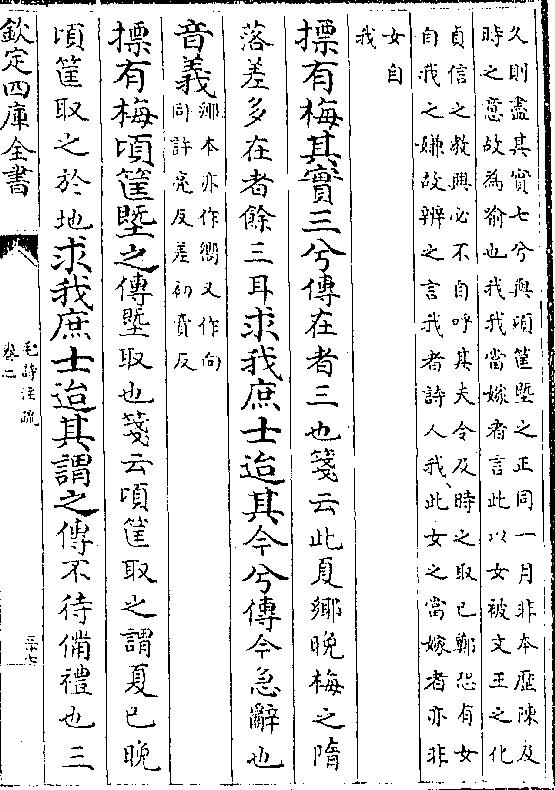 久則盡其實七兮與頃筐塈之正同一月非本歷陳及
時之意故為喻也我我當嫁者言此以女被文王之化
貞信之教興必不自呼其夫令及時之取已鄭恐有女
自我之嫌故辨之言我者詩人我此女之當嫁者亦非
女自
我
摽有梅其實三兮傳在者三也箋云此夏鄉晚梅之隋
落差多在者餘三耳求我庶士迨其今兮傳今急辭也
音義鄉本亦作嚮又作向
同許亮反差初賣反
摽有梅頃筐塈之傳塈取也箋云頃筐取之謂夏已晚
頃筐取之於地求我庶士迨其謂之傳不待備禮也三
欽定四庫全書
毛詩注疏
卷二
三十七